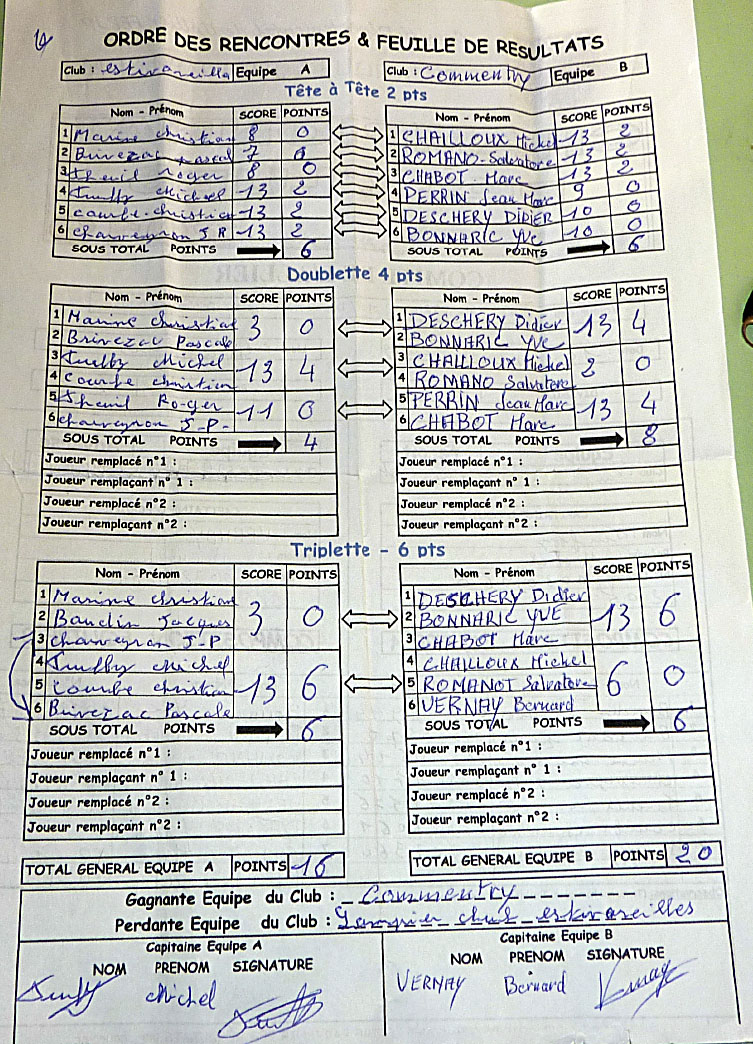 ORDRE DES RENCONTRES & FEUILLE DE RESULTATS
Club : estivareilles Equipe A Club : Commentry Equipe B
Tête à Tête 2 pts
Nom - Prénom SCORE POINTS Nom - Prénom SCORE POINTS
1 Marine christian 8 0 1 CHAILLOUX Mickel 13 2
2 Brivezac pascal 7 0 2 ROMANO-Salvatore 13 2
3 theuil roger 8 0 3 CHABOT Marc 13 2
4 Michel 13 2 4 PERRIN Jean Marc 9 0
5 courbe-christian 13 2 5 DESCHERY DIDIER 10 0
6 chaveyron J P 13 2 6 BONNARIC YVe 10 0
SOUS TOTAL POINTS 6 SOUS TOTAL POINTS 6
Doublette 4 pts
Nom - Prénom SCORE POINTS Nom - Prénom SCORE POINTS
1 Marine christian 3 0 1 DESCHERY Didier 13 4
2 Brivezac Pascale 2 BONNARIC YVe
3 Michel 13 4 3 CHAILLOUX Mickel 2 0
4 Courbe christian 4 ROMANO Salvatore
5 Theuil Roger 11 0 5 PERRIN Jean Marc 13 4
6 chaveyron J-P- 6 CHABOT Marc
SOUS TOTAL POINTS 4 SOUS TOTAL POINTS 8
Joueur remplacé n°1 : Joueur remplacé n°1 :
Joueur remplaçant n° 1 : Joueur remplaçant n° 1 :
Joueur remplacé n°2 : Joueur remplacé n°2 :
Joueur remplaçant n°2 : Joueur remplaçant n°2 :
Triplette - 6 pts
Nom - Prénom SCORE POINTS Nom - Prénom SCORE POINTS
1 Marine christian 3 0 1 DESCHERY Didier 13 6
2 Baudin Jacques 2 BONNARIC YVE
3 chaveyron J-P 3 CHABOT Marc
4 Michel 13 6 4 CHAILLOUX Mickel 6 0
5 Courbe christian 5 ROMANOT Salvatore
6 Brivezac Pascale 6 VERNAY Bernard
SOUS TOTAL POINTS 6 SOUS TOTAL POINTS 6
Joueur remplacé n°1 : Joueur remplacé n°1 :
Joueur remplaçant n° 1 : Joueur remplaçant n° 1 :
Joueur remplacé n°2 : Joueur remplacé n°2 :
Joueur remplaçant n°2 : Joueur remplaçant n°2 :
TOTAL GENERAL EQUIPE A POINTS 16 TOTAL GENERAL EQUIPE B POINTS 20
Gagnante Equipe du Club : Commentry
Perdante Equipe du Club : club estivareilles
Capitaine Equipe A Capitaine Equipe B
NOM PRENOM SIGNATURE NOM PRENOM SIGNATURE
Michel VERNAY Bernard Vernay